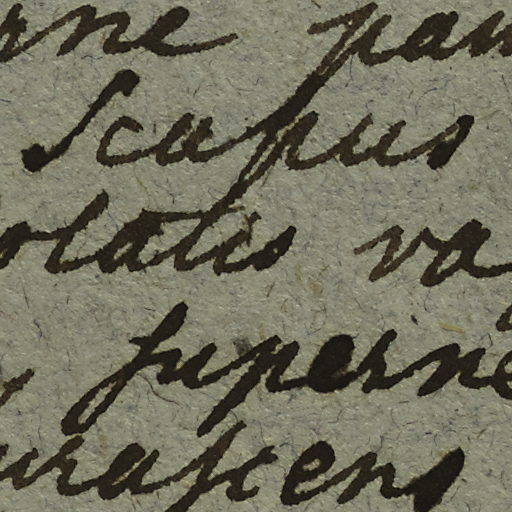 rne pau
Scapus
olatis va
superne
urascens